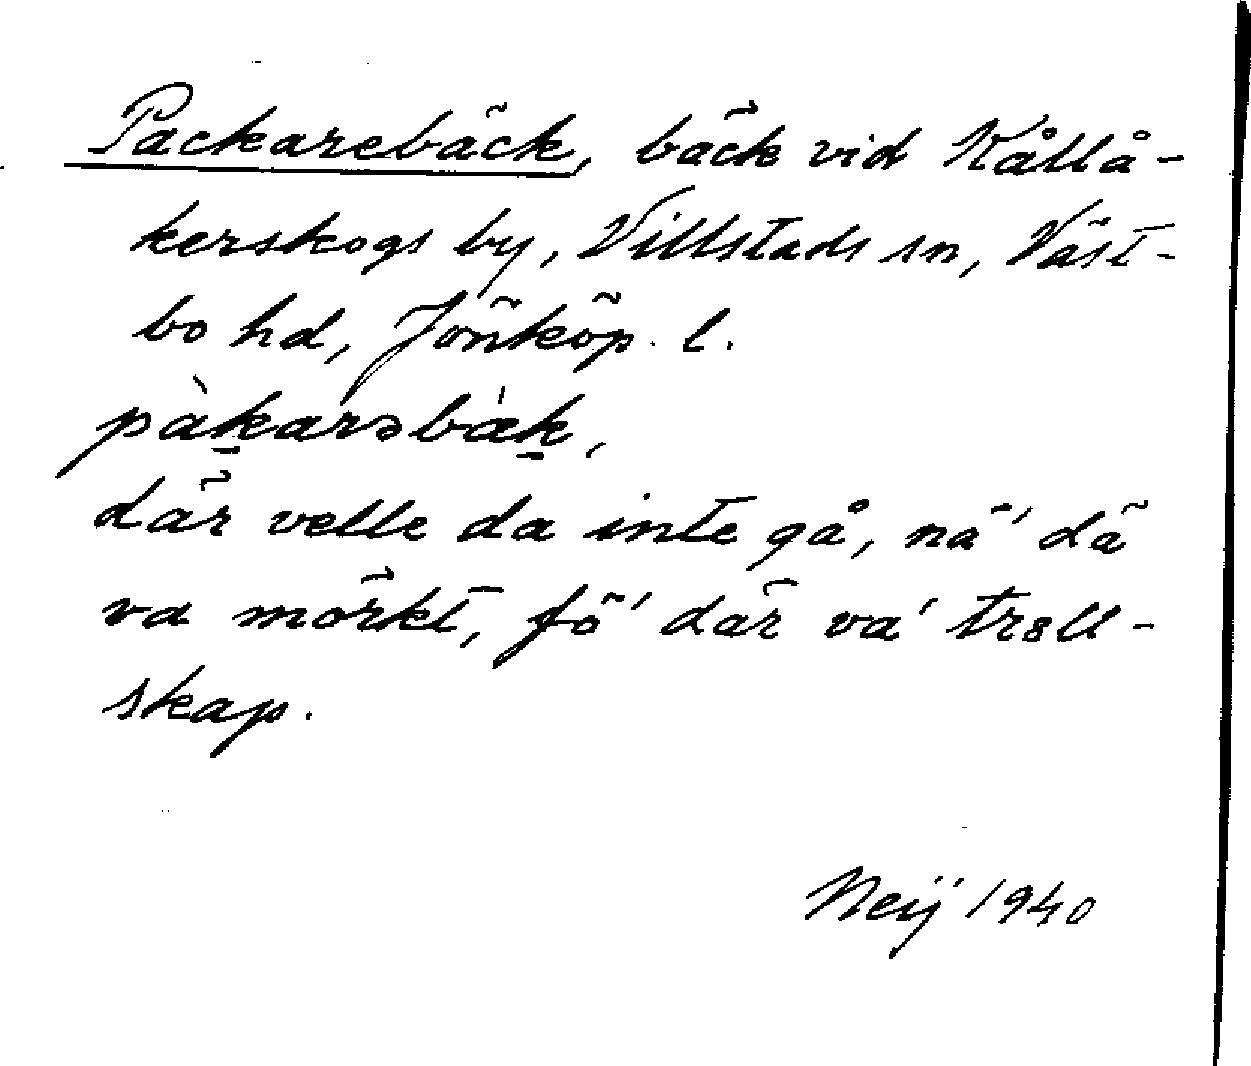 Packarebäck, bäck vid Kållå-
kerskogs by, Villstads sn, Väst-
bo hd, Jönköp. l.
pàk̠arəbæ̍k̠,
där velle da inte gå, nä' dä
va mörkt, fö' där va' troll-
skap.
Neij 1940